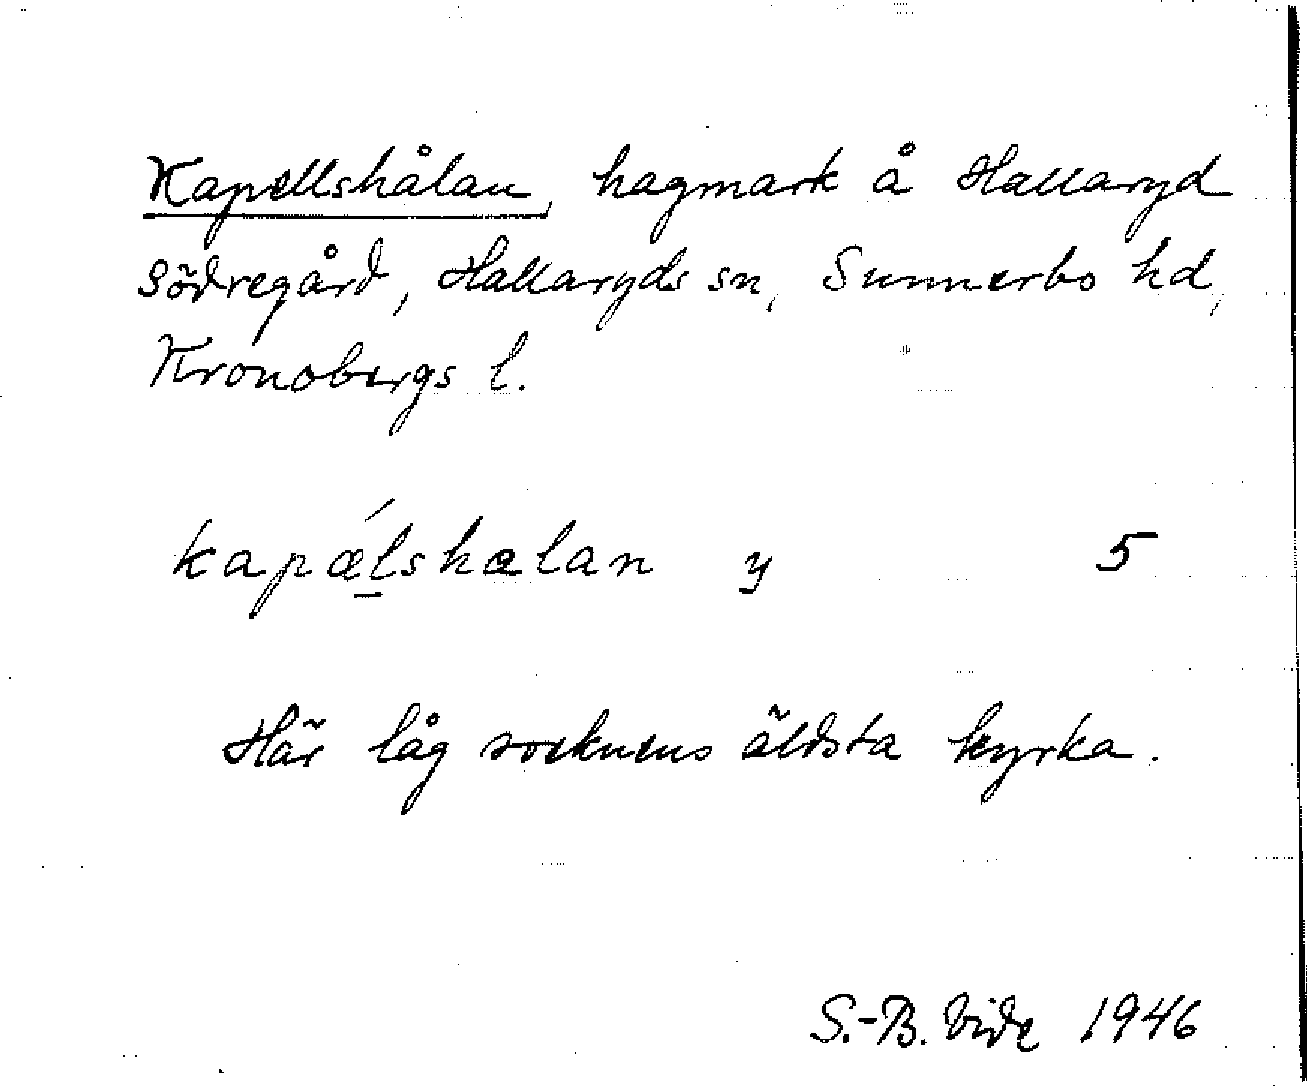 Kapellshålan, hagmark å Hallaryd
Södregård, Hallaryds sn, Sunnerbo hd,
Kronobergs l.
kapǽl̠shalan y 5
Här låg socknens äldsta kyrka.
S.-B. Vide 1946